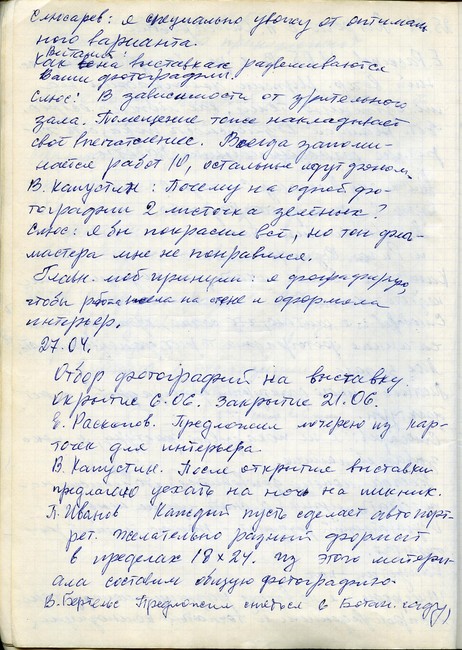 Слюсарев: я специально увожу от оптималь
ного варианта.
Виталий:
Как на выставках развешиваются
Ваши фотографии.
Слюс: В зависимости от зрительного
зала. Помещение тоже накладывает
своё впечатление. Всегда запоми-
нается работ 10, остальные идут фоном.
В. Капустин: Почему на одной фо-
тографии 2 листочка зелёных?
Слюс: я бы покрасил всё, но тон фла-
мастера мне не понравился.
Главн. мой принцип: я фотографирую,
чтобы работа висела на стене и оформляла
интерьер.
27.04.
Отбор фотографий на выставку.
Открытие 6.06. Закрытие 21.06.
Е. Раскопов. Предложил лотерею из кар-
точек для интерьера.
В. Капустин. После открытие выставки
предлагаю уехать на ночь на пикник.
П. Иванов Каждый пусть сделает автопорт-
рет. Желательно разный формат
в пределах 18×24. Из этого матери-
ала составим общую фотографию.
В. Бертельс Предложил сняться в Ботан. саду,